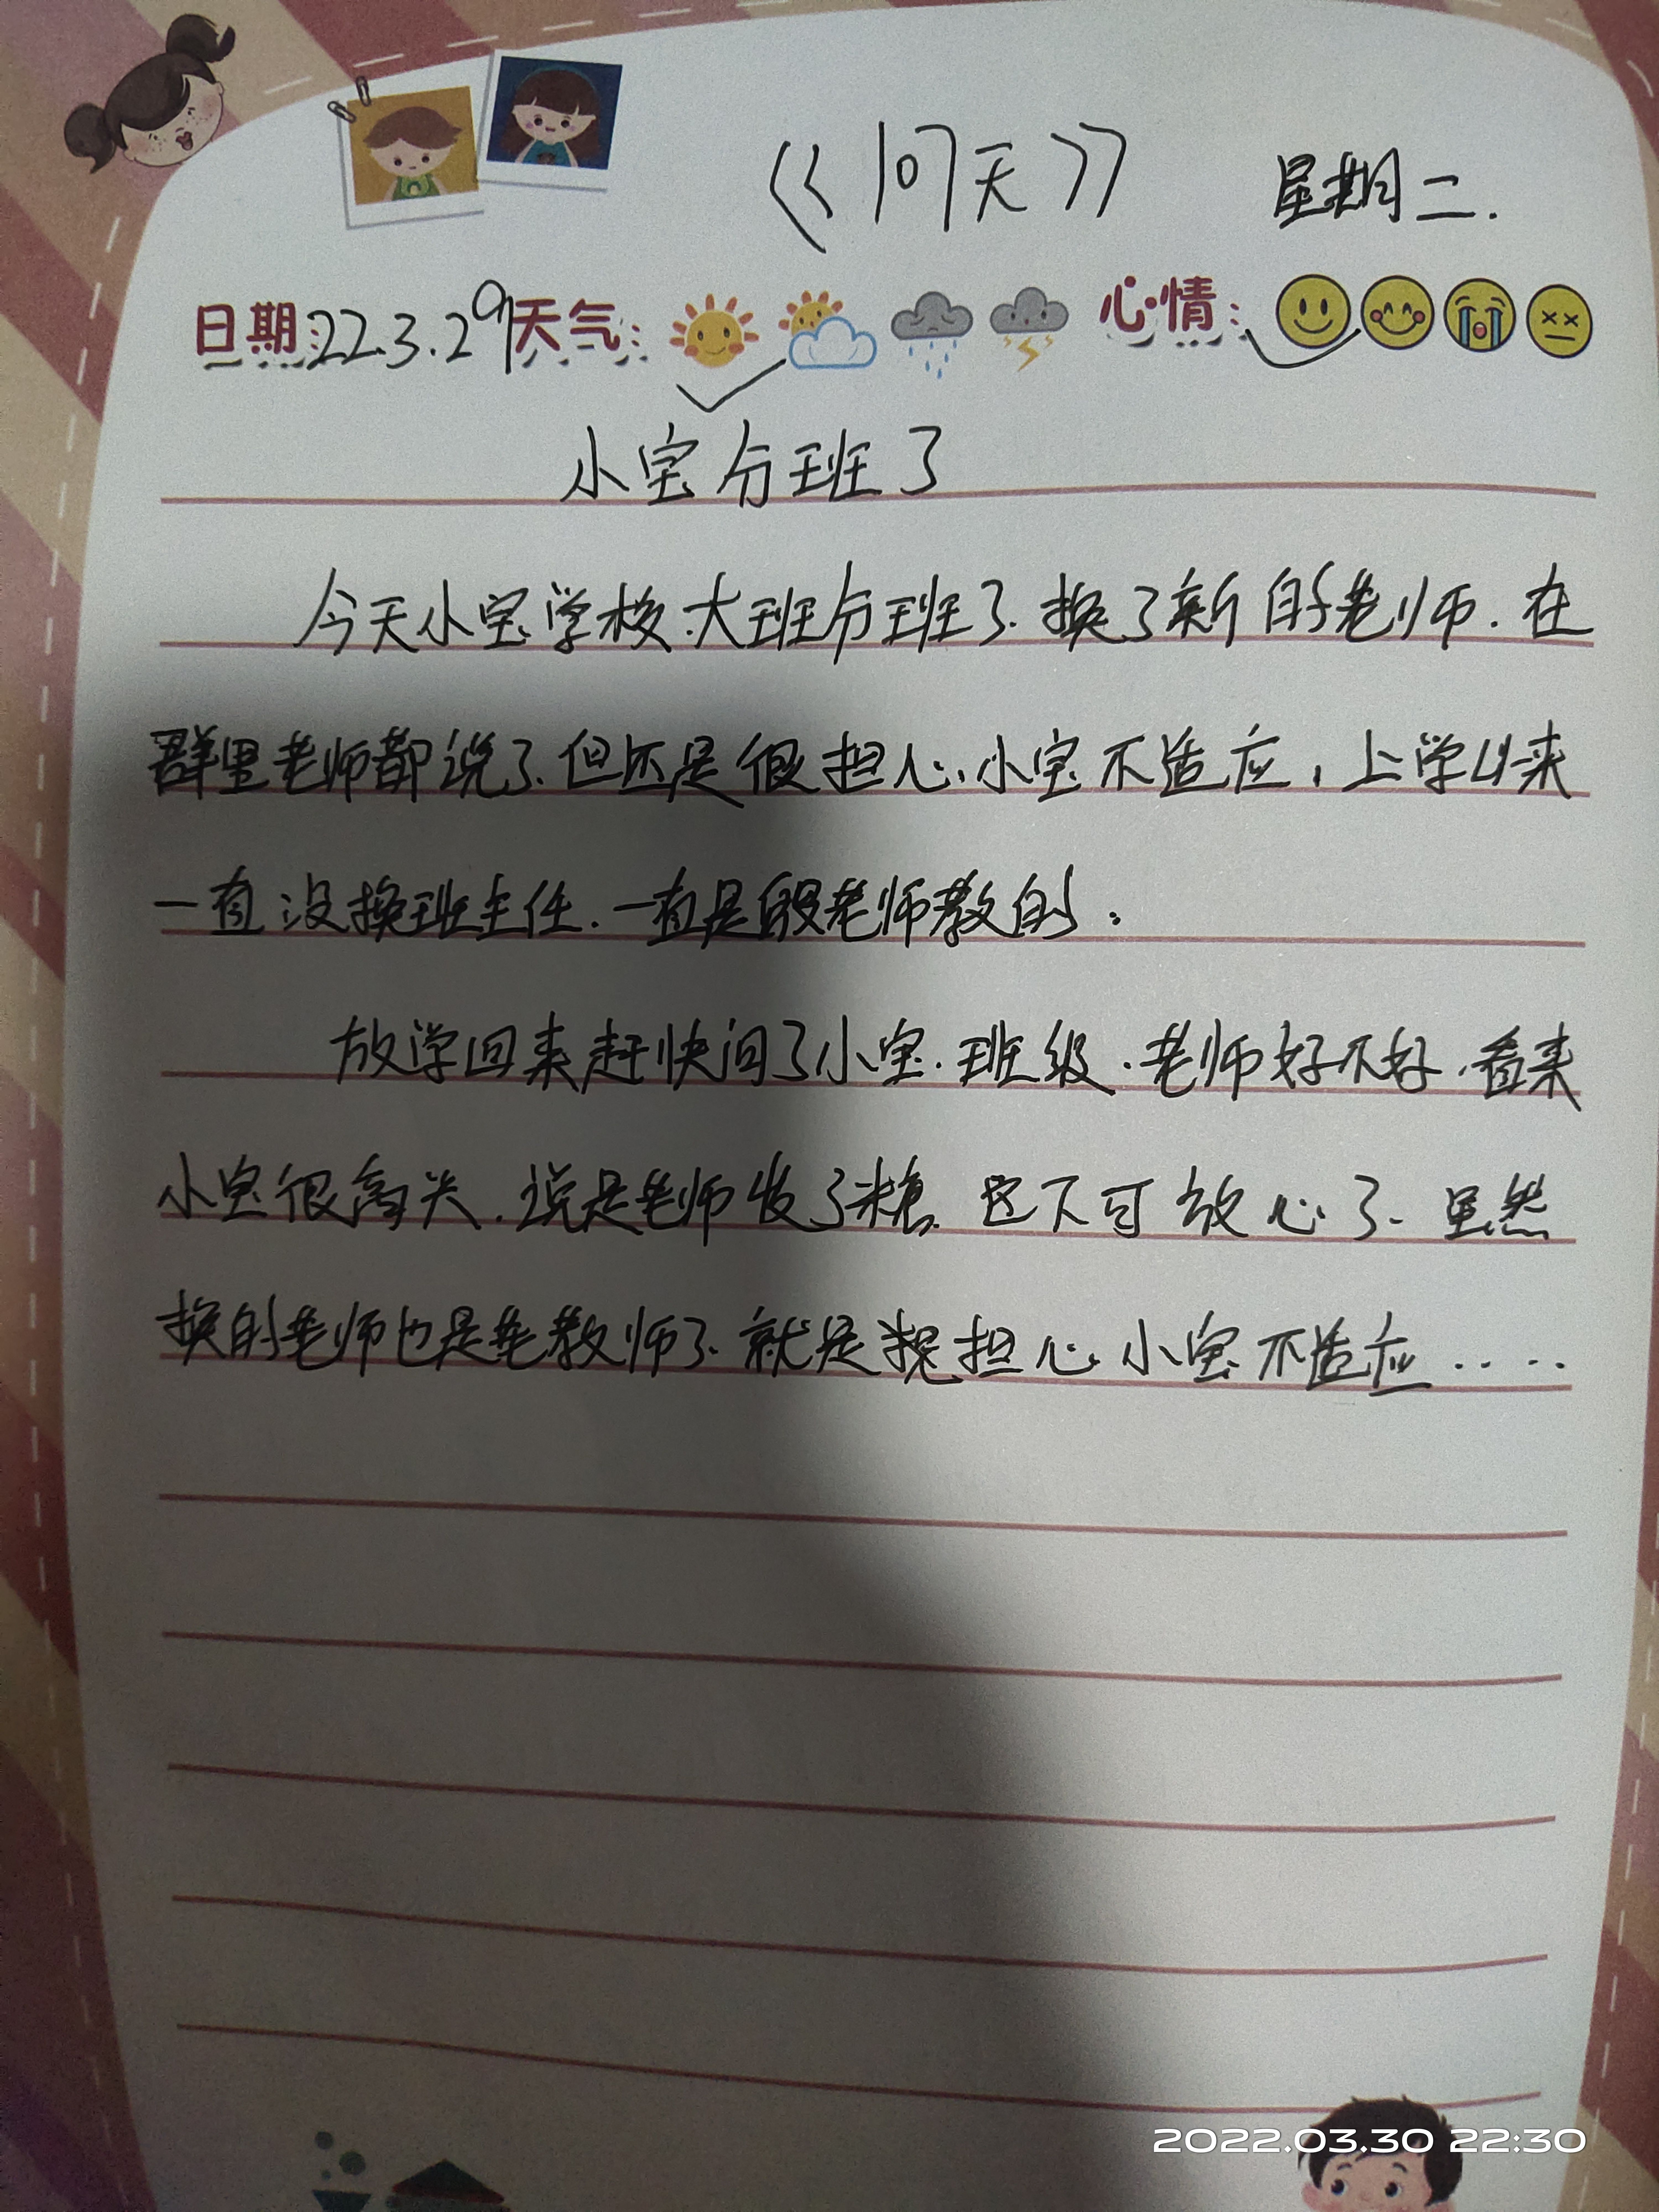 《107天》 星期二.
日期:22.3.29 天气: 心情:
小宝分班了
今天小宝学校.大班分班了.换了新的老师.在
群里老师都说了.但还是很担心.小宝不适应，上学以来
一直没换班主任.一直是段老师教的.
放学回来赶快问了小宝.班级.老师好不好.看来
小宝很高兴.说是老师发了糖.这下可放心了.虽然
换的老师也是老教师了.就是挺担心小宝不适应.....
2022.03.30 22:30